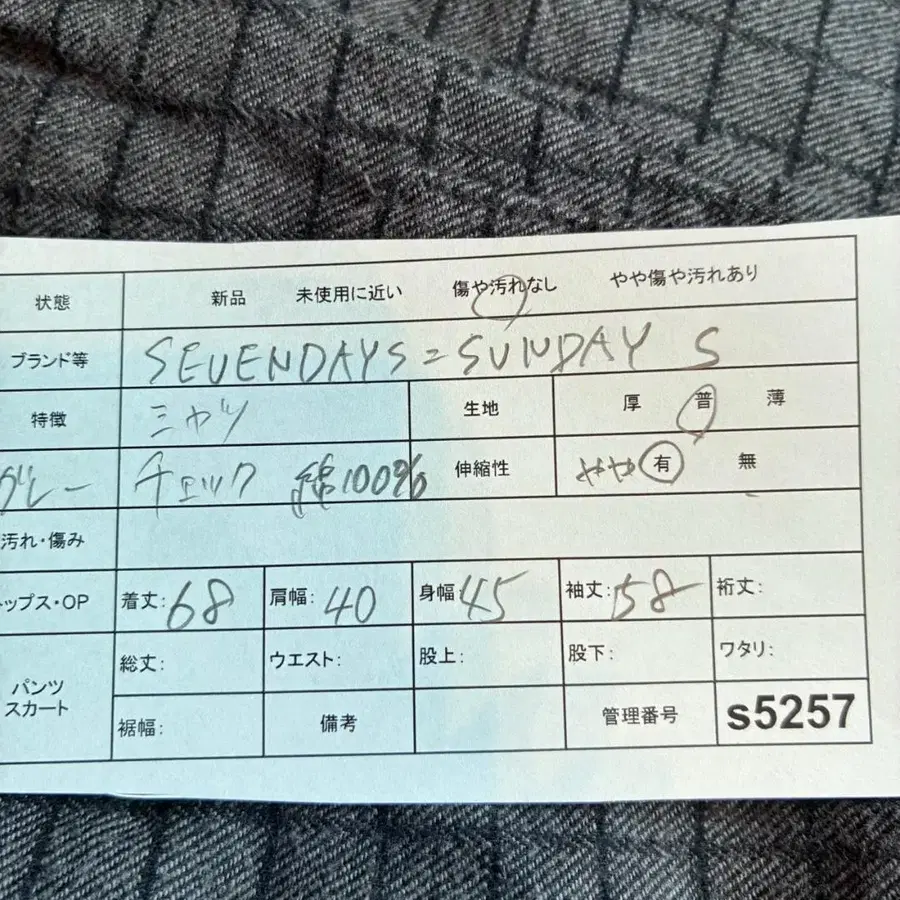 状態 新品 未使用に近い 傷や汚れなし やや傷や汚れあり
ブランド等 SEVENDAYS=SUNDAY S
特徴 シャツ 生地 厚 普 薄
グレー チェック 綿100% 伸縮性 やや 有 無
汚れ・傷み
トップス・OP 着丈:68 肩幅:40 身幅:45 袖丈:58 裄丈:
パンツ スカート 総丈: ウエスト: 股上: 股下: ワタリ:
裾幅: 備考 管理番号 s5257